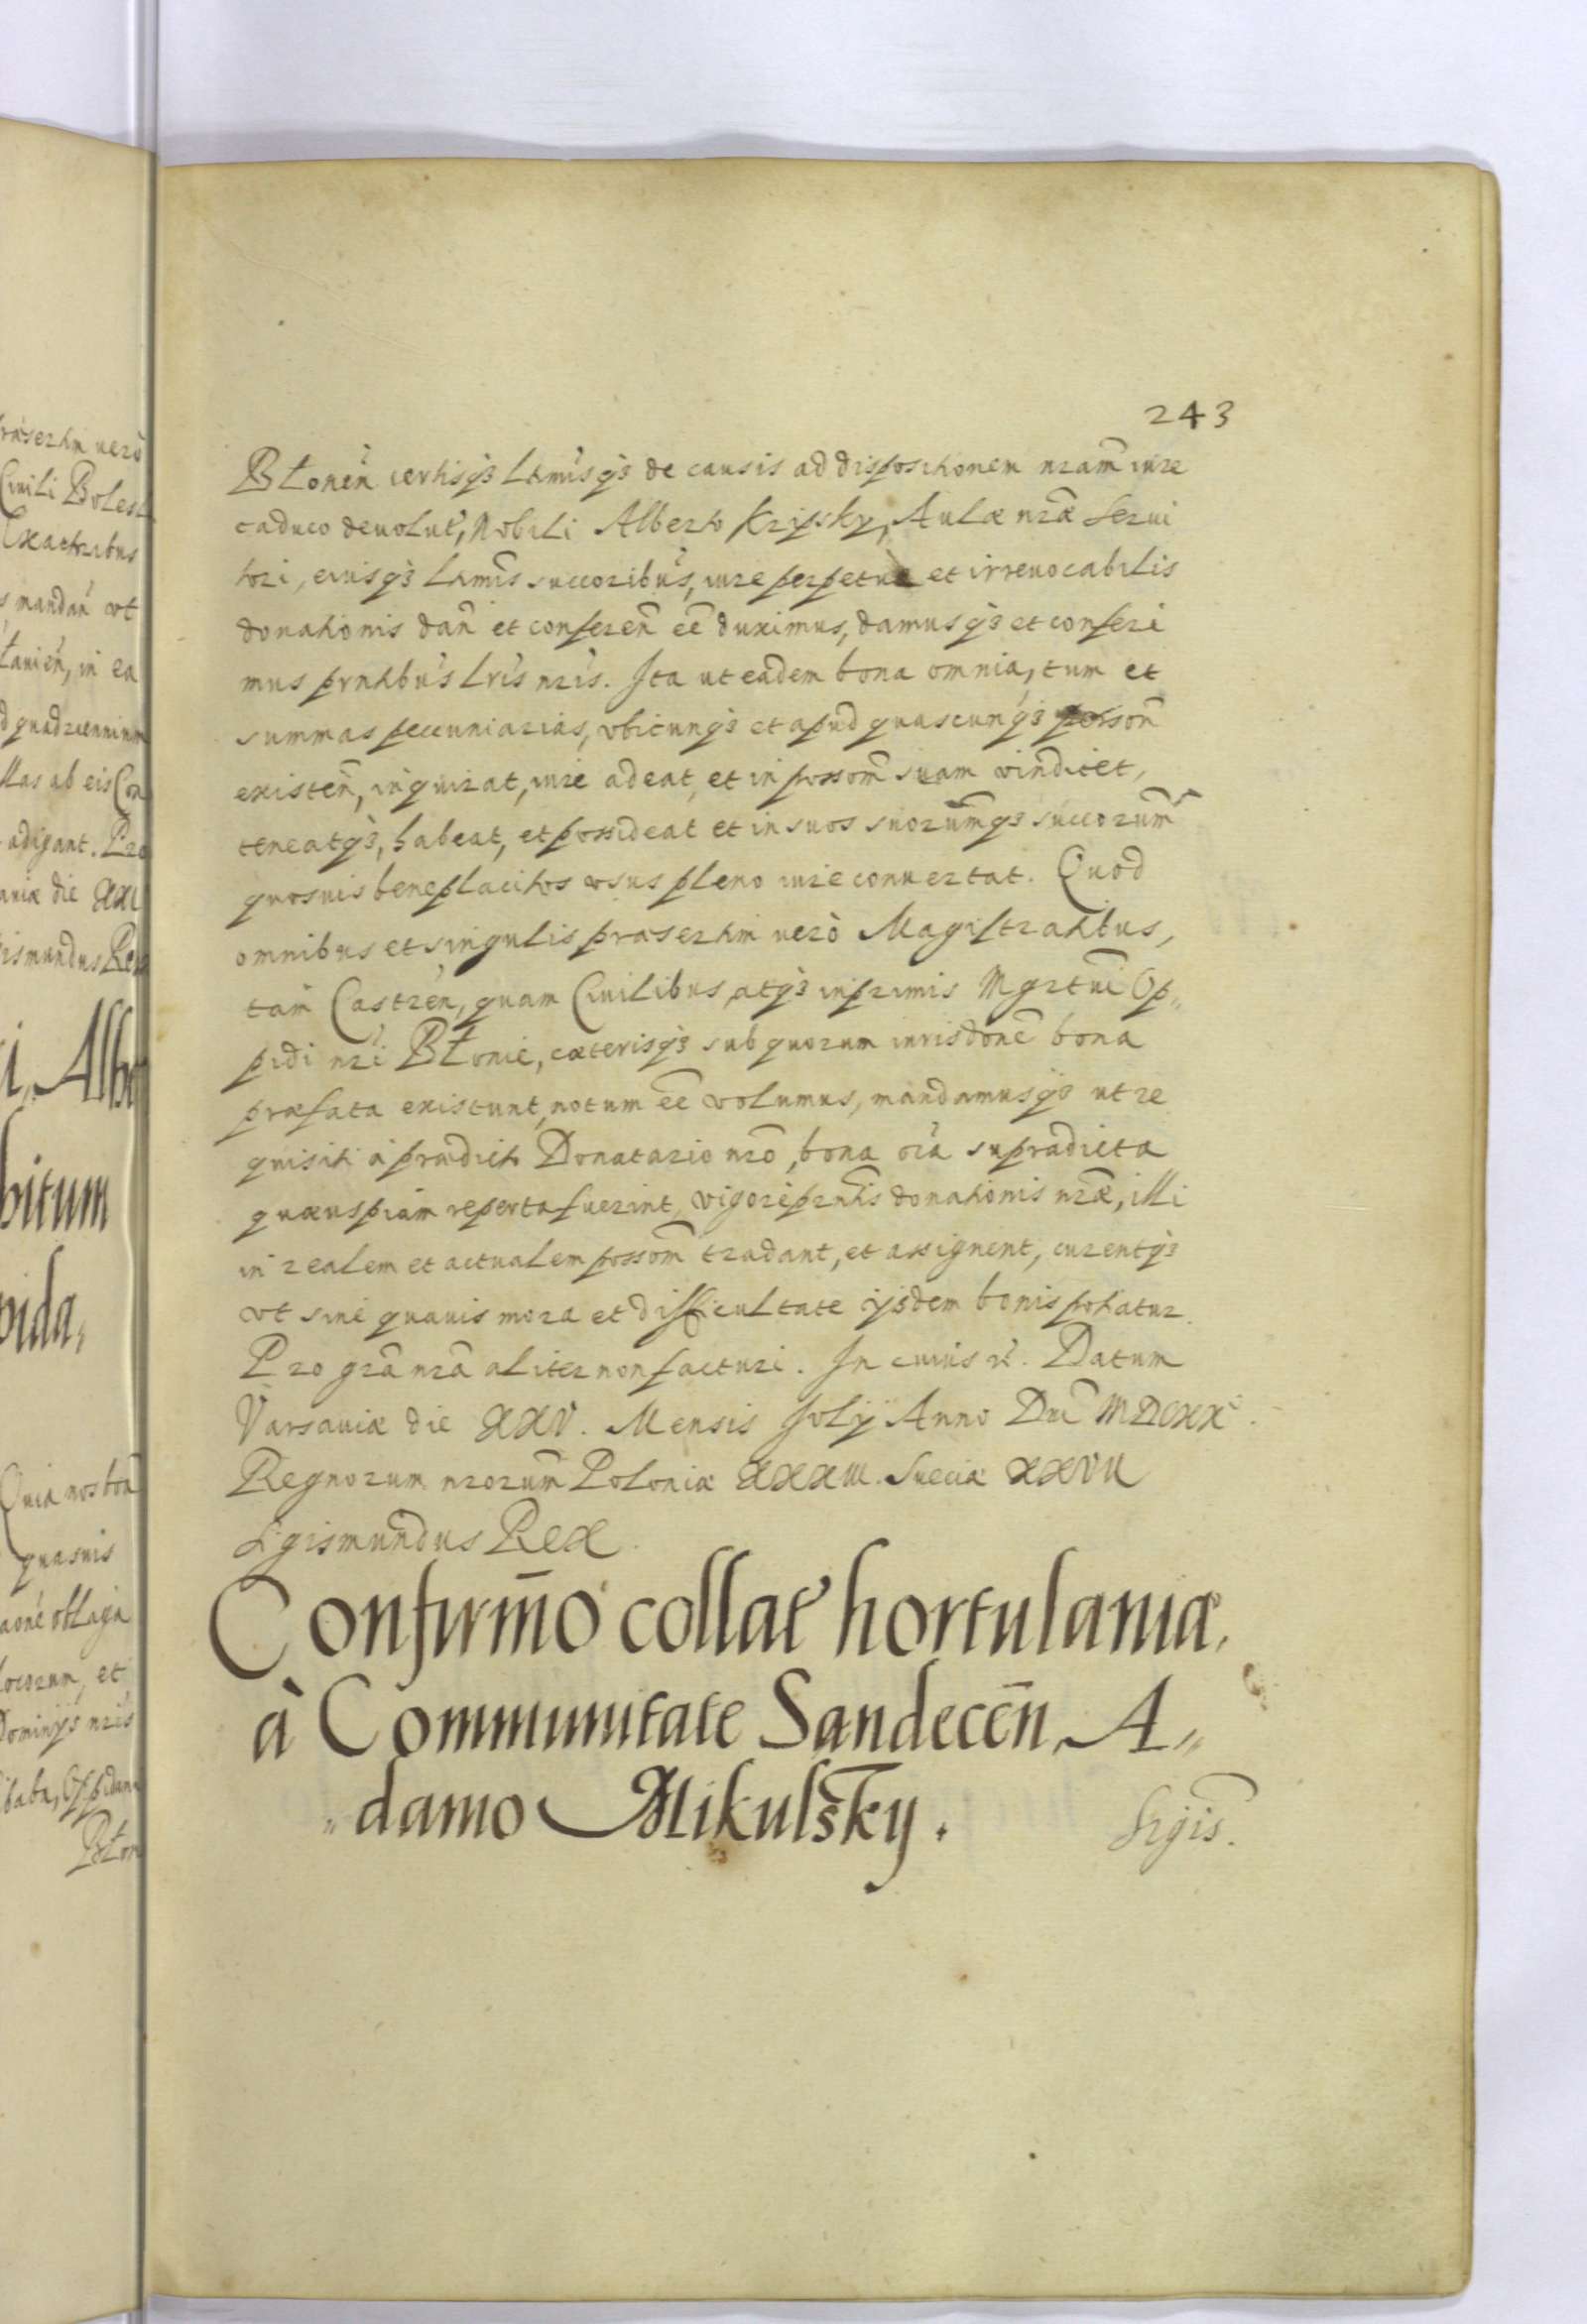 243
Błonen̄ certisq3 Ltm̄isq3 de causis ad dispositionem nr̄am iure
caduco deuolut̄, Nobili Alberto Krzijsky, Aulæ nr̄æ Serui
tori, eiusq3 Ltm̄is succoribus, iure perpetuæ et irreuocabilis
donationis dan̄ et conferen̄ eē duximus, damusq3 et conferi
mus pr̄ntibus Lr̄is nr̄is. Ita ut eadem bona omnia, tum et
summas pecuniarias, vbicunq3 et apud quascunq3 person̄
existen̄, inquirat, iure adeat, et in possom̄ suam vindicet,
teneatq3, habeat, et possideat et in suos suorumq3 succorum̄
quosuis beneplacitos vsus pleno iure conuertat. Quod
omnibus et singulis præsertim uerò Magistratibus,
tam Castren̄, quam Ciuilibus, atq3 inprimis Mgrtui Op„
pidi nr̄i Błonie, cæterisq3 sub quorum iurisdonē bona
præfata existunt, notum eē volumus, mandamusq3 ut re
quisiti à prædicto Donatario nr̄o, bona oīa supradicta
quæuspiam reperta fuerint, vigore pr̄ntis donationis nr̄æ, illi
in realem et actualem possom̄ tradant, et assignent, curentq3
vt sine quauis mora et difficultate ijsdem bonis potiatur.
Pro gr̄a nr̄a aliter non facturi. In cuius rē. Datum
Varsauiæ die XXV. Mensis Julij Anno Dn̄i MDCXX.
Regnorum nr̄orum Poloniæ XXXIII. Sueciæ XXVII
Sigismundus Rex.
Confirm̄o collat̄ hortulaniæ,
à Communitate Sandecen̄, A„
„damo Mikulsky.
Sigis.